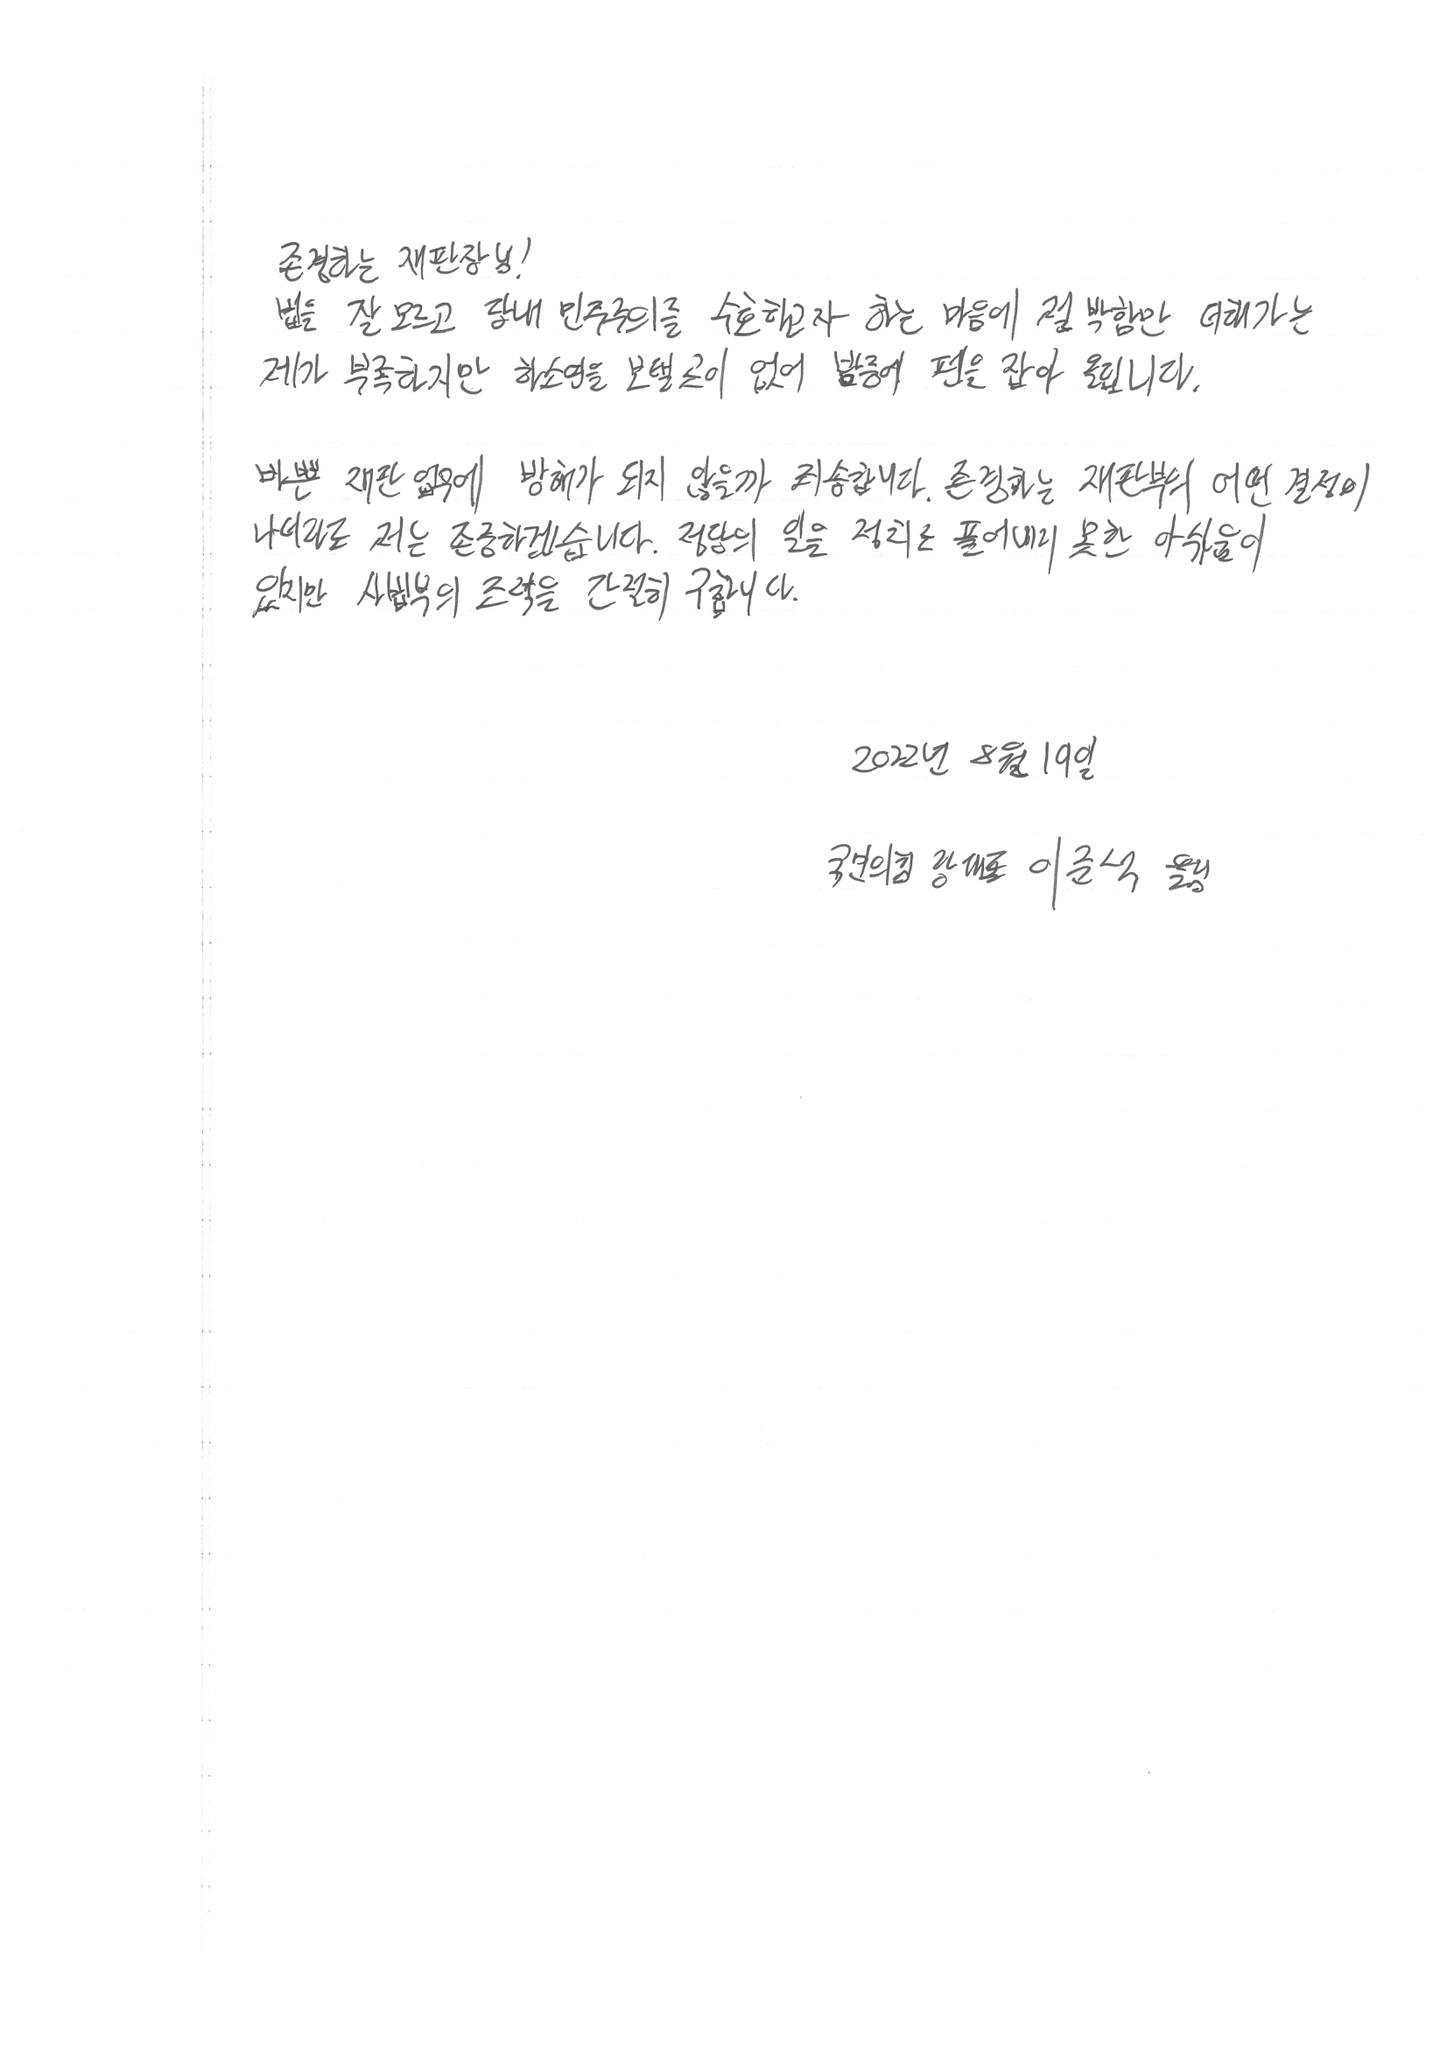 존경하는 재판장님!
법을 잘 모르고 당내 민주주의를 수호하고자 하는 마음에 절박함만 더해가는
제가 부족하지만 하소연을 보탤 곳이 없어 밤중에 펜을 잡아 올립니다.
바쁜 재판 업무에 방해가 되지 않을까 죄송합니다. 존경하는 재판부의 어떤 결정이
나더라도 저는 존중하겠습니다. 정당의 일을 정치로 풀어내지 못한 아쉬움이
있지만 사법부의 조력을 간절히 구합니다.
2022년 8월 19일
국민의힘 당대표 이준석 올림